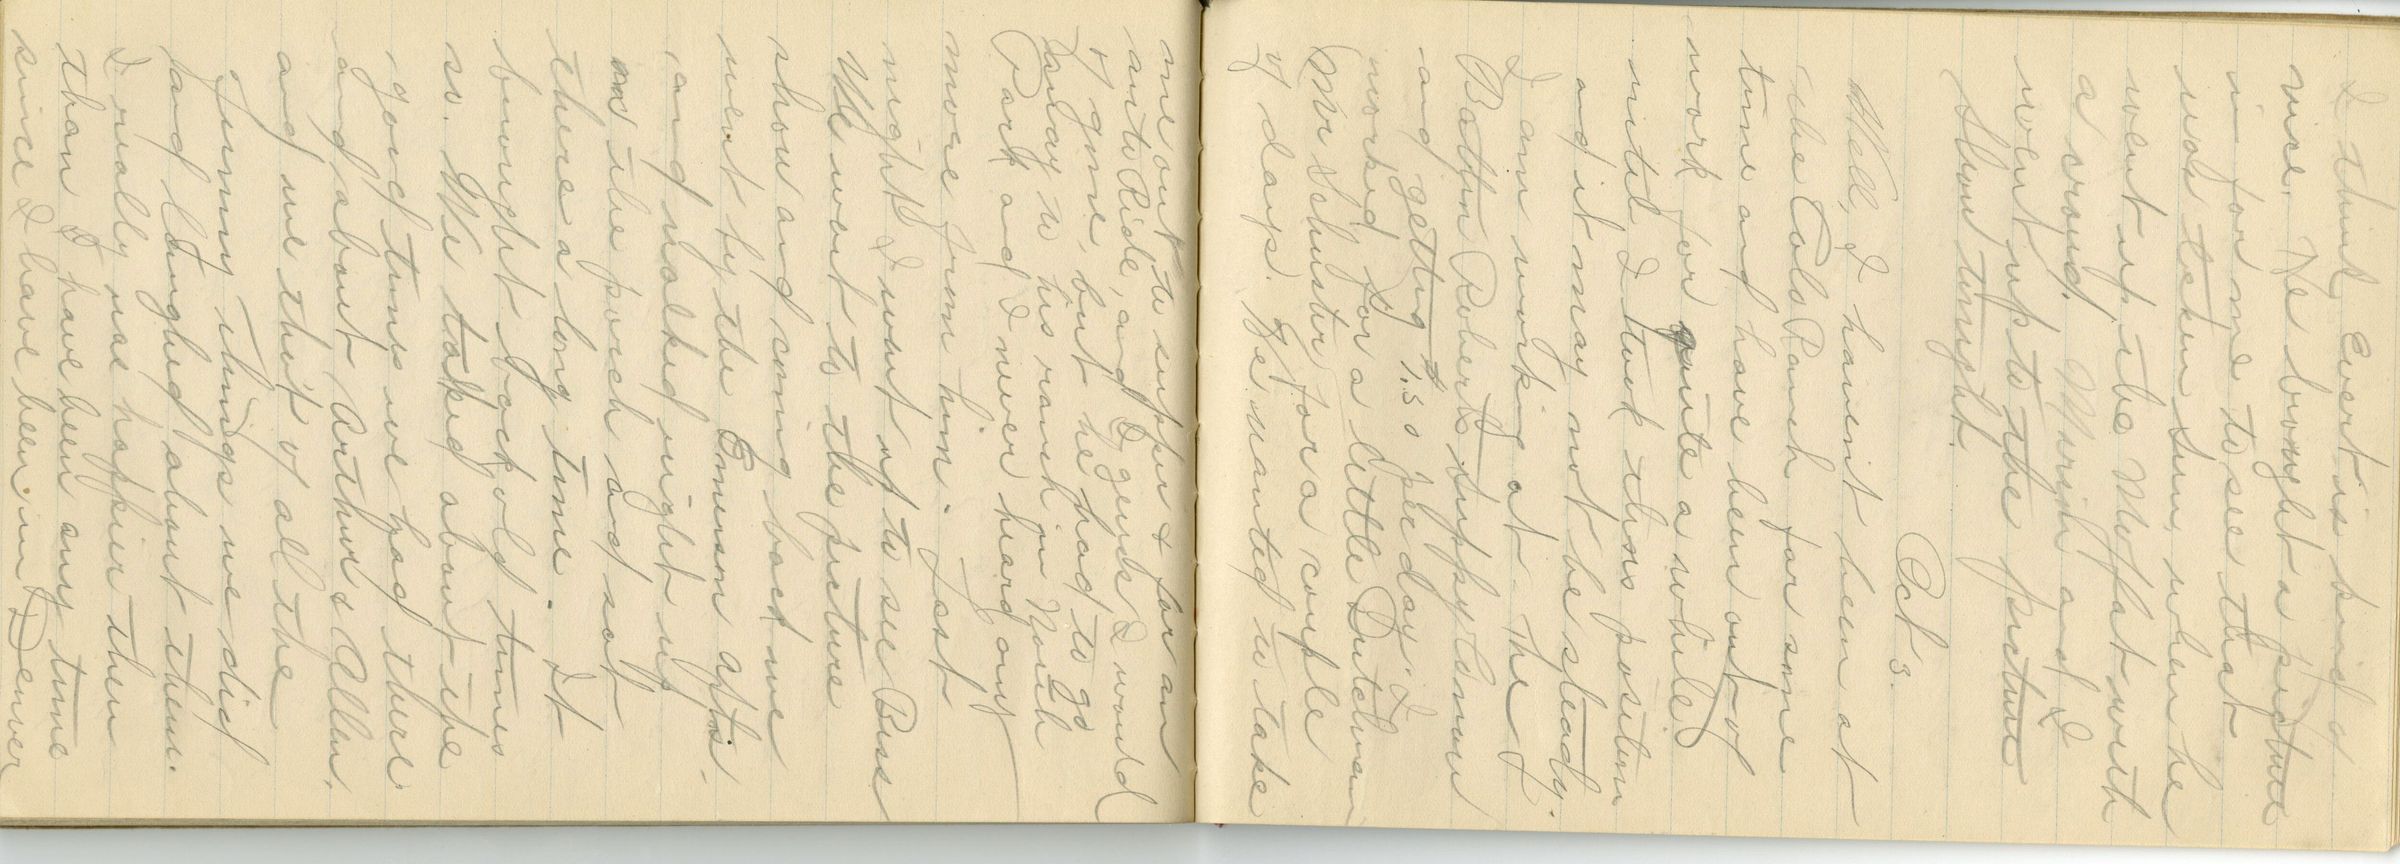 I think Evert is kind of
nice. He brought a picture
in for me to see that
was taken Sun, when he
went up the Moffat with
a crowd. Marish and I
went up to the picture
show tonight.
Oct 3.
Well, I havent been at
the Colo Ranch for some
time and have been out of
work for quite a while,
until I took this position
and it may not be steady.
I am working at the
Battin Roberts Supply Comm
and getting 1.50 per day. I
worked for a little Dutchman
(Mr Schuster) for a couple
of days. He wanted to take
me out to supper & for an
auto Ride, and I guess I would
of gone, but he had to go
away to his ranch in North
Park and I never heard any
more from him. Last
night I went up to see Bess
We went to the picture
show and coming back we
went by the Emerson apts.
and walked right up
on the porch and sat
there a long time. It
brought back old times
so. We talked about the
good times we had there
and about Arthur & Allen.
and we thot of all the
funny things we did
and laughed about them.
I really was happier then
than I have been any time
since I have been in Denver